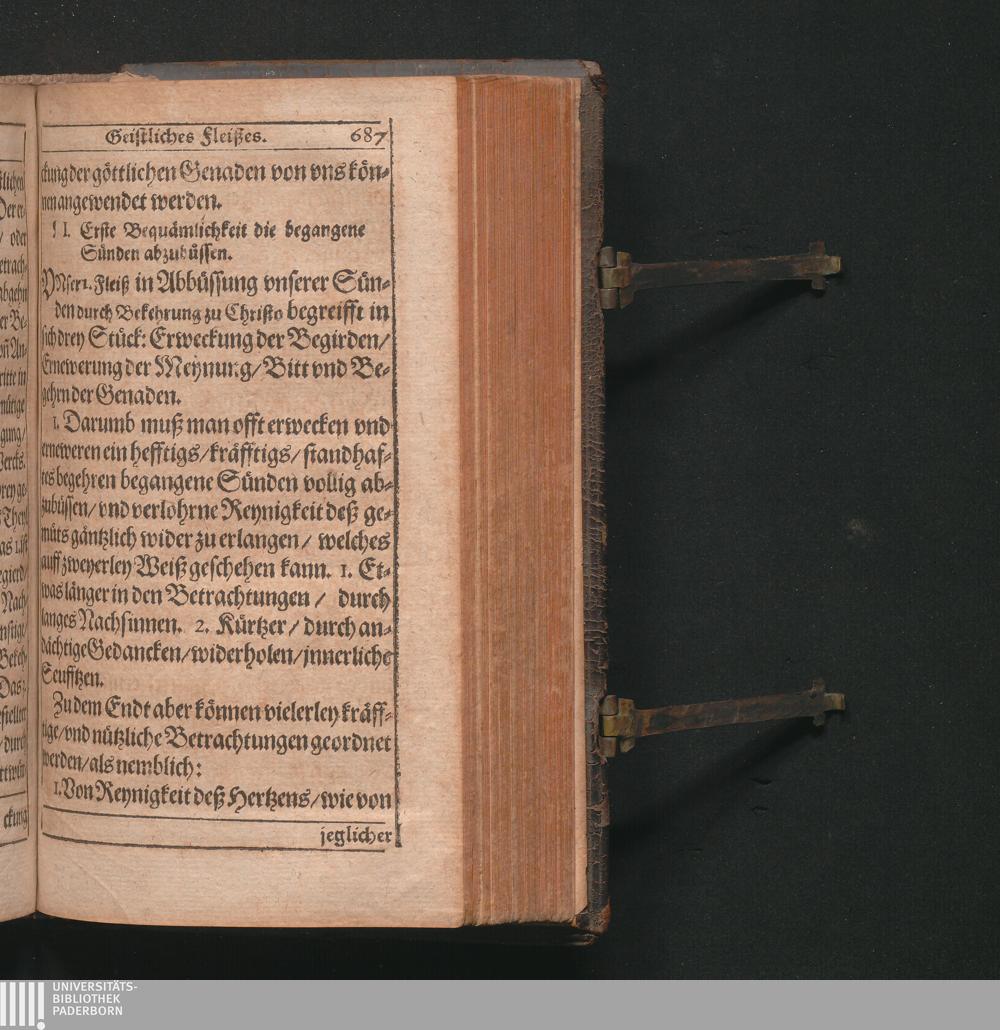 Geistliches Fleißes. 687
ckung der göttlichen Genaden von vns kön-
nen angewendet werden.
II. Erste Bequämlichkeit die begangene
Sünden abzubüssen.
VNser 1. Fleiß in Abbüssung vnserer Sün-
den durch Bekehrung zu Christo begreifft in
sich drey Stück: Erweckung der Begirden/
Ernewerung der Meynung/ Bitt vnd Be-
gehrn der Genaden.
1. Darumb muß man offt erwecken vnd
erneweren ein hefftigs/ kräfftigs/ standhaf-
tes begehren begangene Sünden vollig ab-
zubüssen/ vnd verlohrne Reynigkeit deß ge-
müts gäntzlich wider zu erlangen/ welches
auff zweyerley Weiß geschehen kann. 1. Et-
was länger in den Betrachtungen/ durch
langes Nachsinnen. 2. Kürtzer/ durch an-
dächtige Gedancken/ widerholen/ jnnerliche
Seufftzen.
Zu dem Endt aber können vielerley kräff-
tige/ vnd nützliche Betrachtungen geordnet
werden/ als nemblich:
1. Von Reynigkeit deß Hertzens/ wie von
jeglicher
ckung
UNIVERSITÄTS-
BIBLIOTHEK
PADERBORN